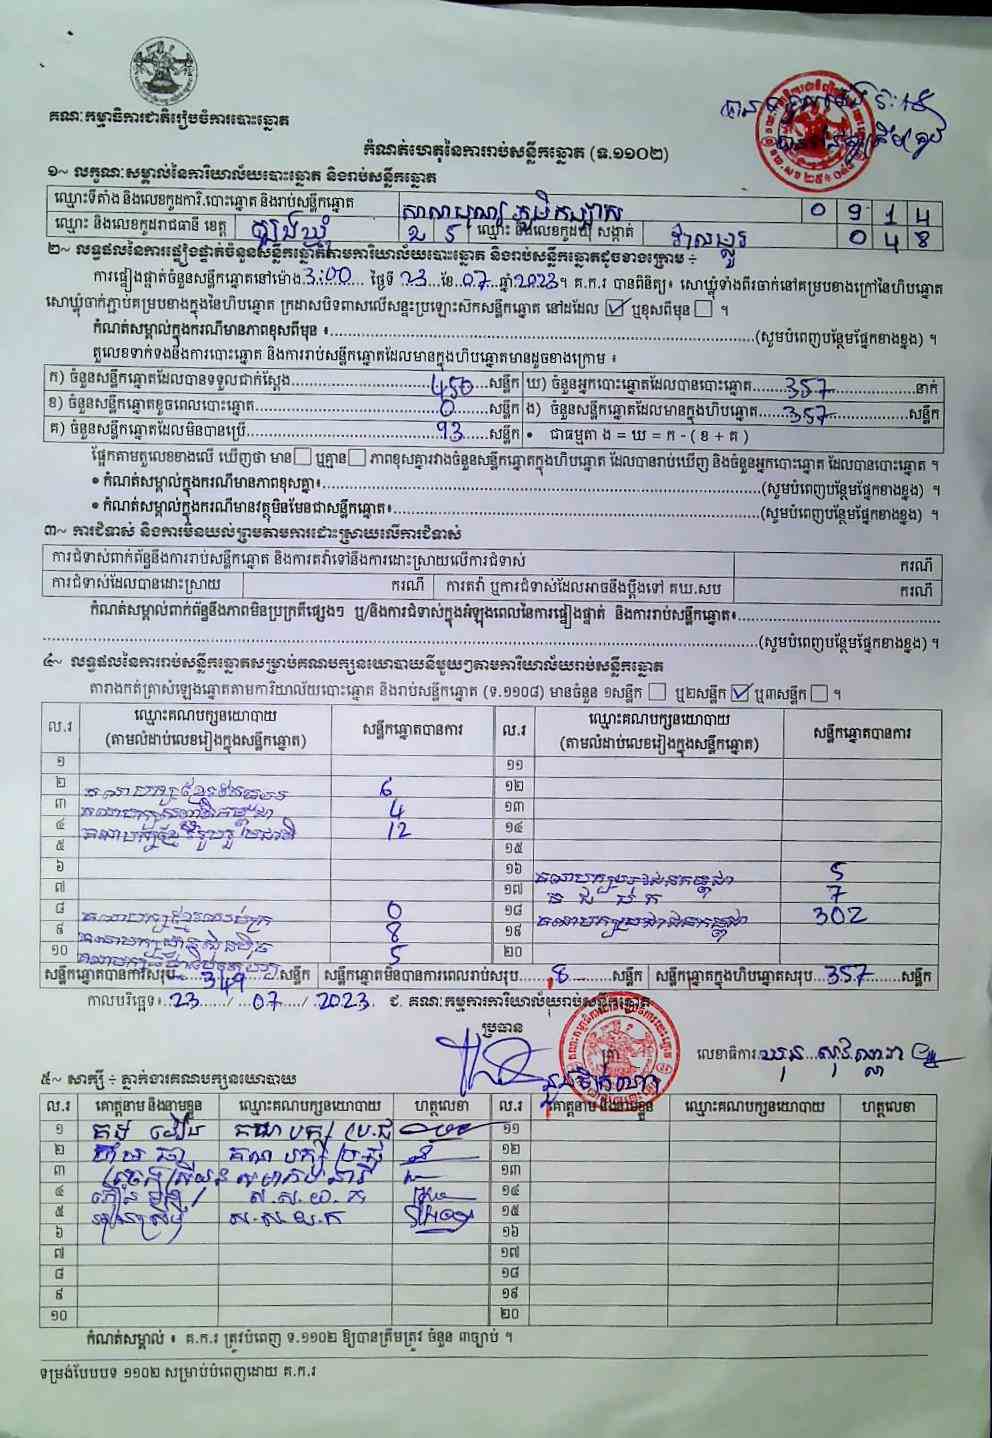 គណៈកម្មាធិការជាតិរៀបចំការបោះឆ្នោត
កំណត់ហេតុនៃការរាប់សន្លឹកឆ្នោត (ទ.១១០២)
១~ លក្ខណៈសម្គាល់នៃការិយាល័យបោះឆ្នោត និងរាប់សន្លឹកឆ្នោត
ឈ្មោះទីតាំង និងលេខកូដការិ.បោះឆ្នោត និងរាប់សន្លឹកឆ្នោត 0 9 1 4
ឈ្មោះ និងលេខកូដរាជធានី ខេត្ត ត្បូងឃ្មុំ 2 5 ឈ្មោះ និងលេខកូដឃុំ សង្កាត់ 0 4 8
២~ លទ្ធផលនៃការផ្ទៀងផ្ទាត់ចំនួនសន្លឹកឆ្នោតតាមការិយាល័យបោះឆ្នោត និងរាប់សន្លឹកឆ្នោតដូចខាងក្រោម ÷
ការផ្ទៀងផ្ទាត់ចំនួនសន្លឹកឆ្នោតនៅម៉ោង 3:00 ថ្ងៃទី 23 ខែ 07 ឆ្នាំ 2023។ គ.ក.រ បានពិនិត្យ៖ សោឃ្លុំទាំងពីរចាក់នៅគម្របខាងក្រៅនៃហិបឆ្នោត
សោឃ្លុំចាក់ភ្ជាប់គម្របខាងក្នុងនៃហិបឆ្នោត ក្រដាសបិទពាសលើសន្ទះប្រឡោះស៊កសន្លឹកឆ្នោត នៅដដែល ☑ ឬខុសពីមុន ☐ ។
កំណត់សម្គាល់ក្នុងករណីមានភាពខុសពីមុន ៖ (សូមបំពេញបន្ថែមផ្នែកខាងខ្នង) ។
តួលេខទាក់ទងនឹងការបោះឆ្នោត និងការរាប់សន្លឹកឆ្នោតដែលមានក្នុងហិបឆ្នោតមានដូចខាងក្រោម ៖
ក) ចំនួនសន្លឹកឆ្នោតដែលបានទទួលជាក់ស្តែង 450 សន្លឹក ឃ) ចំនួនអ្នកបោះឆ្នោតដែលបានបោះឆ្នោត 357 នាក់
ខ) ចំនួនសន្លឹកឆ្នោតខូចពេលបោះឆ្នោត 0 សន្លឹក ង) ចំនួនសន្លឹកឆ្នោតដែលមានក្នុងហិបឆ្នោត 357 សន្លឹក
គ) ចំនួនសន្លឹកឆ្នោតដែលមិនបានប្រើ 93 សន្លឹក • ជាធម្មតា ង = ឃ = ក - ( ខ + គ )
ផ្អែកតាមតួលេខខាងលើ ឃើញថា មាន ☐ ឬគ្មាន ☐ ភាពខុសគ្នារវាងចំនួនសន្លឹកឆ្នោតក្នុងហិបឆ្នោត ដែលបានរាប់ឃើញ និងចំនួនអ្នកបោះឆ្នោត ដែលបានបោះឆ្នោត ។
• កំណត់សម្គាល់ក្នុងករណីមានភាពខុសគ្នា៖ (សូមបំពេញបន្ថែមផ្នែកខាងខ្នង) ។
• កំណត់សម្គាល់ក្នុងករណីមានវត្ថុមិនមែនជាសន្លឹកឆ្នោត៖ (សូមបំពេញបន្ថែមផ្នែកខាងខ្នង) ។
៣~ ការជំទាស់ និងការមិនយល់ព្រមតាមការដោះស្រាយលើការជំទាស់
ការជំទាស់ពាក់ព័ន្ធនឹងការរាប់សន្លឹកឆ្នោត និងការតវ៉ាទៅនឹងការដោះស្រាយលើការជំទាស់ ករណី
ការជំទាស់ដែលបានដោះស្រាយ ករណី ការតវ៉ា ឬការជំទាស់ដែលអាចនឹងប្តឹងទៅ គឃ.សប ករណី
កំណត់សម្គាល់ពាក់ព័ន្ធនឹងភាពមិនប្រក្រតីផ្សេងៗ ឬ/និងការជំទាស់ក្នុងអំឡុងពេលនៃការផ្ទៀងផ្ទាត់ និងការរាប់សន្លឹកឆ្នោត៖
(សូមបំពេញបន្ថែមផ្នែកខាងខ្នង) ។
៤~ លទ្ធផលនៃការរាប់សន្លឹកឆ្នោតសម្រាប់គណបក្សនយោបាយនីមួយៗតាមការិយាល័យរាប់សន្លឹកឆ្នោត
តារាងកត់ត្រាសំឡេងឆ្នោតតាមការិយាល័យបោះឆ្នោត និងរាប់សន្លឹកឆ្នោត (ទ.១១០៨) មានចំនួន ១សន្លឹក ☐ ឬ២សន្លឹក ☑ ឬ៣សន្លឹក ☐ ។
ល.រ ឈ្មោះគណបក្សនយោបាយ (តាមលំដាប់លេខរៀងក្នុងសន្លឹកឆ្នោត) សន្លឹកឆ្នោតបានការ ល.រ ឈ្មោះគណបក្សនយោបាយ (តាមលំដាប់លេខរៀងក្នុងសន្លឹកឆ្នោត) សន្លឹកឆ្នោតបានការ
១ ១១
២ 6 ១២
៣ 4 ១៣
៤ 12 ១៤
៥ ១៥
៦ ១៦ 5
៧ ១៧ 7
៨ 0 ១៨ គណបក្សប្រជាជនកម្ពុជា 302
៩ 8 ១៩
១០ 5 ២០
សន្លឹកឆ្នោតបានការសរុប 349 សន្លឹក សន្លឹកឆ្នោតមិនបានការពេលរាប់សរុប 8 សន្លឹក សន្លឹកឆ្នោតក្នុងហិបឆ្នោតសរុប 357 សន្លឹក
កាលបរិច្ឆេទ៖ 23 / 07 / 2023 ជ. គណៈកម្មការការិយាល័យរាប់សន្លឹកឆ្នោត
ប្រធាន
ត្រា លេខាធិការ
៥~ សាក្សី ÷ ភ្នាក់ងារគណបក្សនយោបាយ
ល.រ គោត្តនាម និងនាមខ្លួន ឈ្មោះគណបក្សនយោបាយ ហត្ថលេខា ល.រ គោត្តនាម និងនាមខ្លួន ឈ្មោះគណបក្សនយោបាយ ហត្ថលេខា
១ គណបក្ស ប្រ.ជ ១១
២ គណបក្ស ១២
៣ ១៣
៤ ស.ស.យ.ក ១៤
៥ ស.ស.យ.ក ១៥
៦ ១៦
៧ ១៧
៨ ១៨
៩ ១៩
១០ ២០
កំណត់សម្គាល់ ៖ គ.ក.រ ត្រូវបំពេញ ទ.១១០២ ឱ្យបានត្រឹមត្រូវ ចំនួន ៣ច្បាប់ ។
ទម្រង់បែបបទ ១១០២ សម្រាប់បំពេញដោយ គ.ក.រ